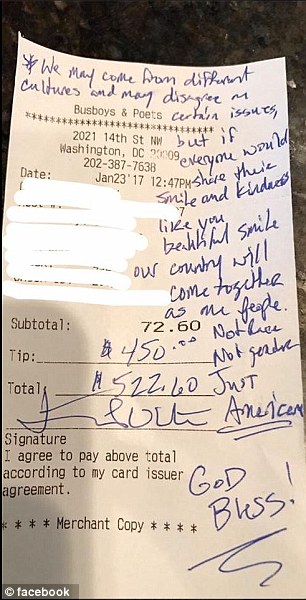 * We may come from different
cultures and may disagree on
certain issues,
Busboys & Poets
********************
2021 14th St NW
Washington, DC 20009
202-387-7638
but if
everyone would
Date: Jan23'17 12:47PM
share their
smile and kindness
like your
beautiful smile
our country will
come together
as one people.
Not race
Not gender
Just
American
Subtotal: 72.60
Tip: $450.00
Total $522.60
Signature
I agree to pay above total
according to my card issuer
agreement.
GOD
Bless!
* * * * Merchant Copy * * * *
© facebook